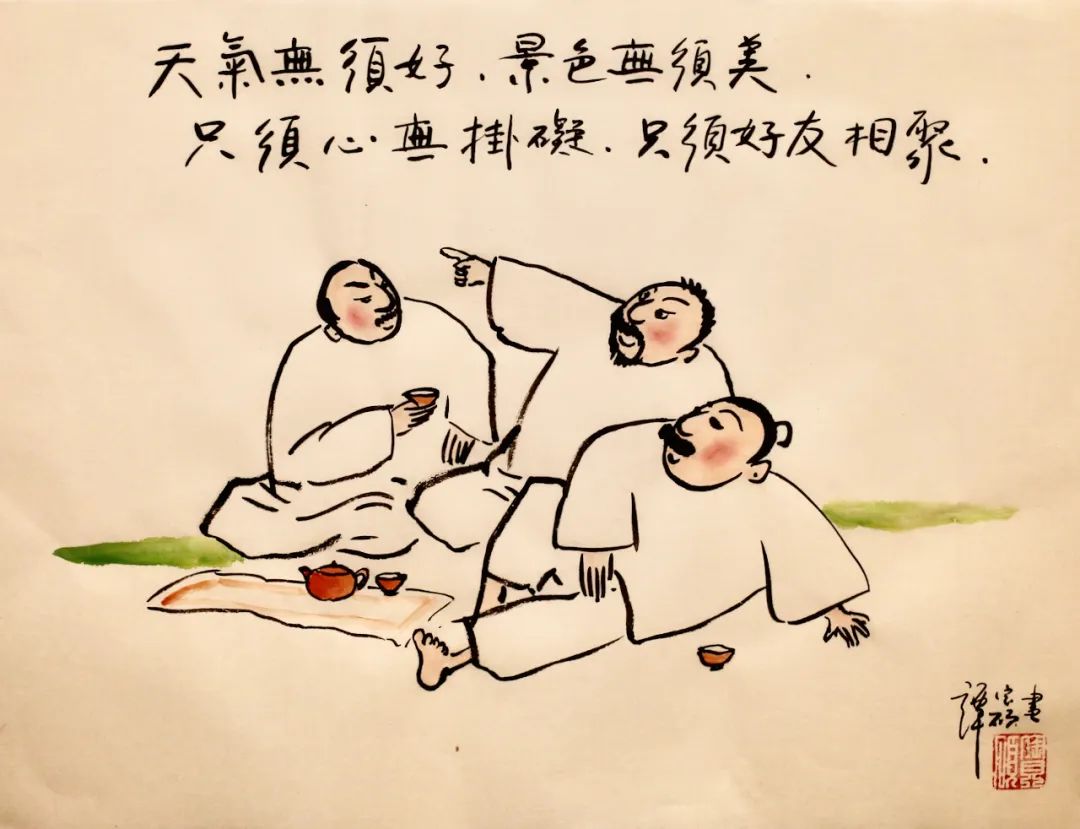 天氣無須好．景色無須美．
只須心無掛礙．只須好友相聚．
譚